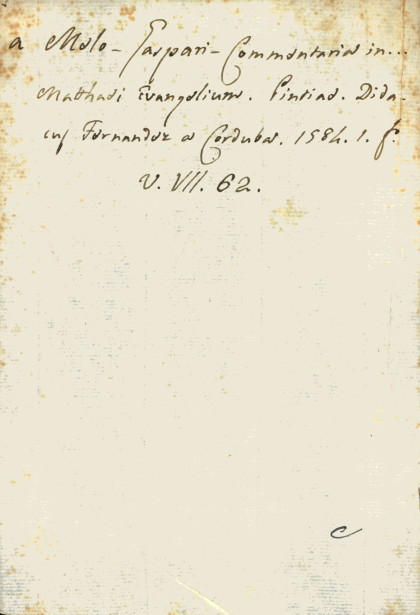 a Melo - Gaspari - Commentaria in...
Mathaei Evangelium. Pintiae. Dida-
cus Fernandez a Corduba. 1584. 1. f.º
V. VII. 62.
C